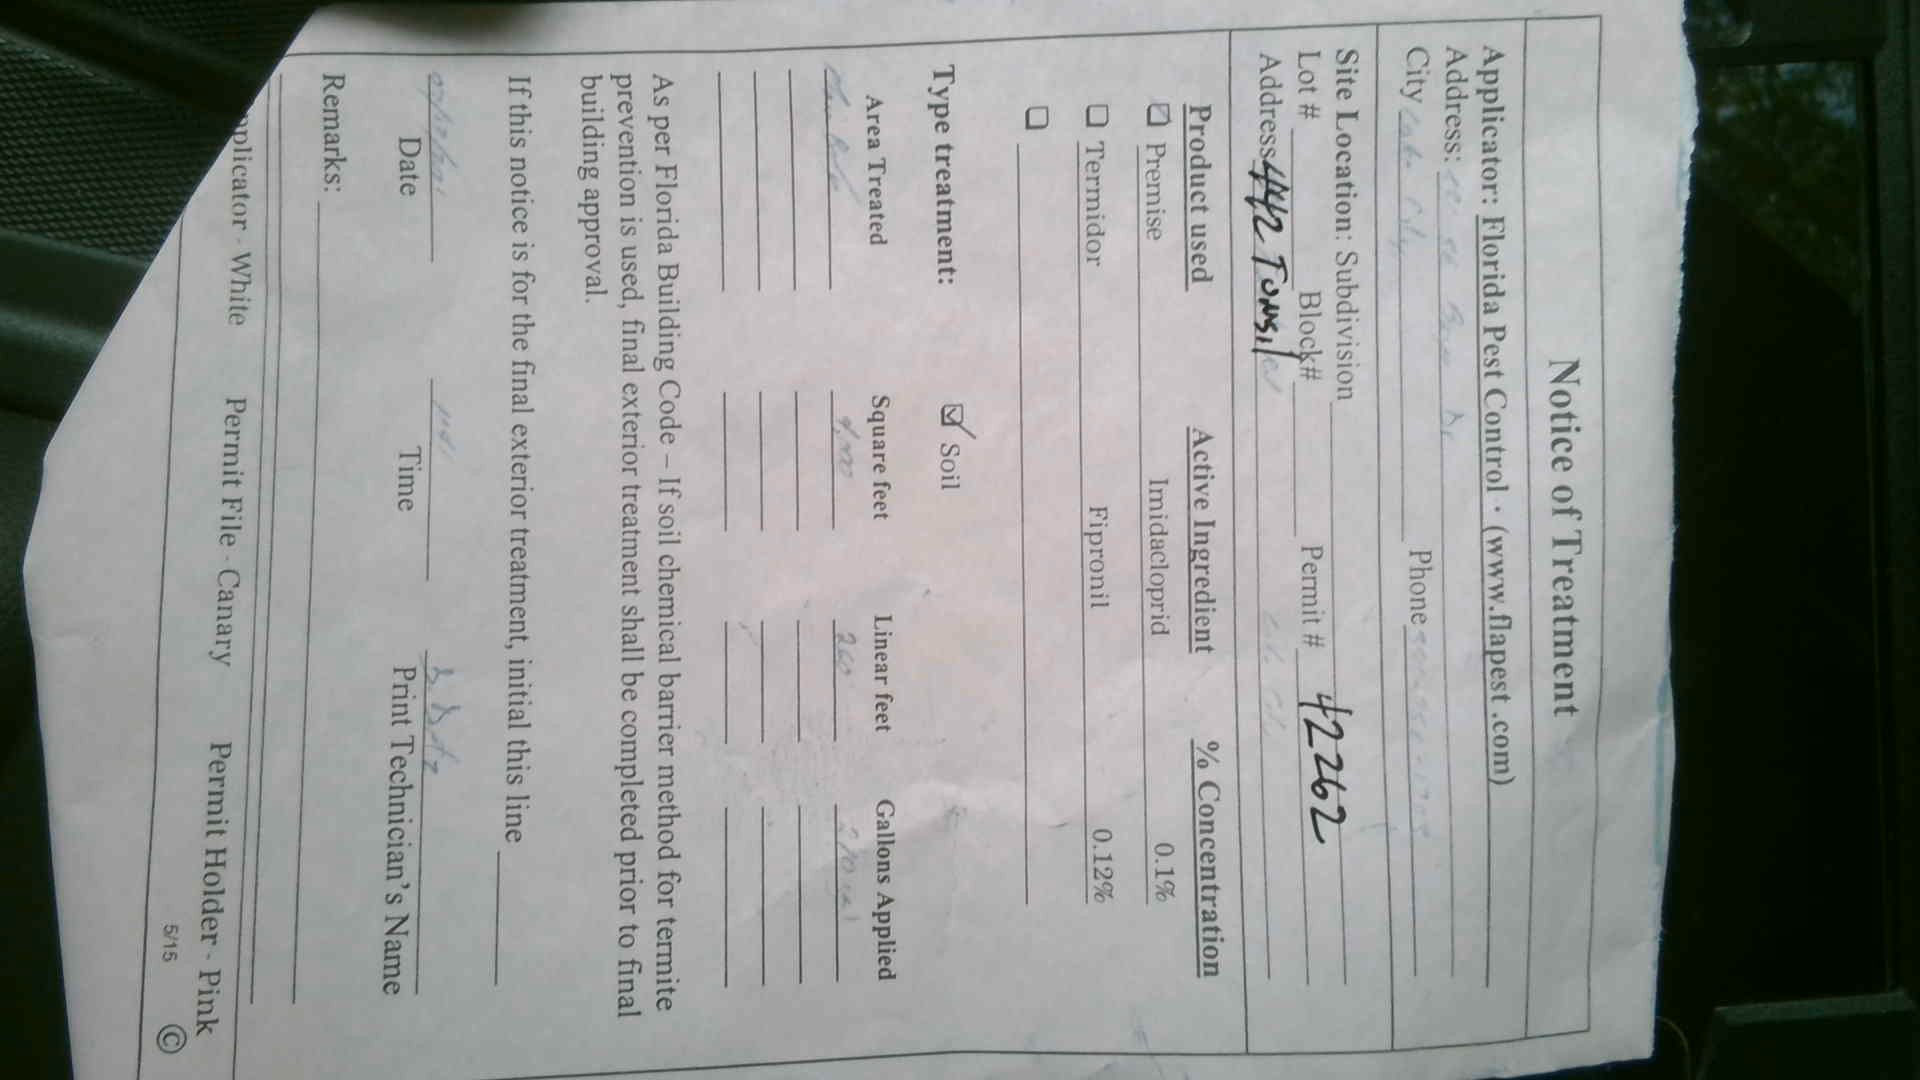 Notice of Treatment
Applicator: Florida Pest Control · (www.flapest.com)
Address:
City Lake City Phone
Site Location: Subdivision
Lot # Block# Permit # 42262
Address 442 Tonsil
Product used Active Ingredient % Concentration
☑ Premise Imidacloprid 0.1%
☐ Termidor Fipronil 0.12%
☐
Type treatment: ☑ Soil
Area Treated Square feet Linear feet Gallons Applied
260 270 gal
As per Florida Building Code – If soil chemical barrier method for termite
prevention is used, final exterior treatment shall be completed prior to final
building approval.
If this notice is for the final exterior treatment, initial this line
Date Time Print Technician's Name
Remarks:
pplicator - White Permit File - Canary Permit Holder - Pink
5/15 ©